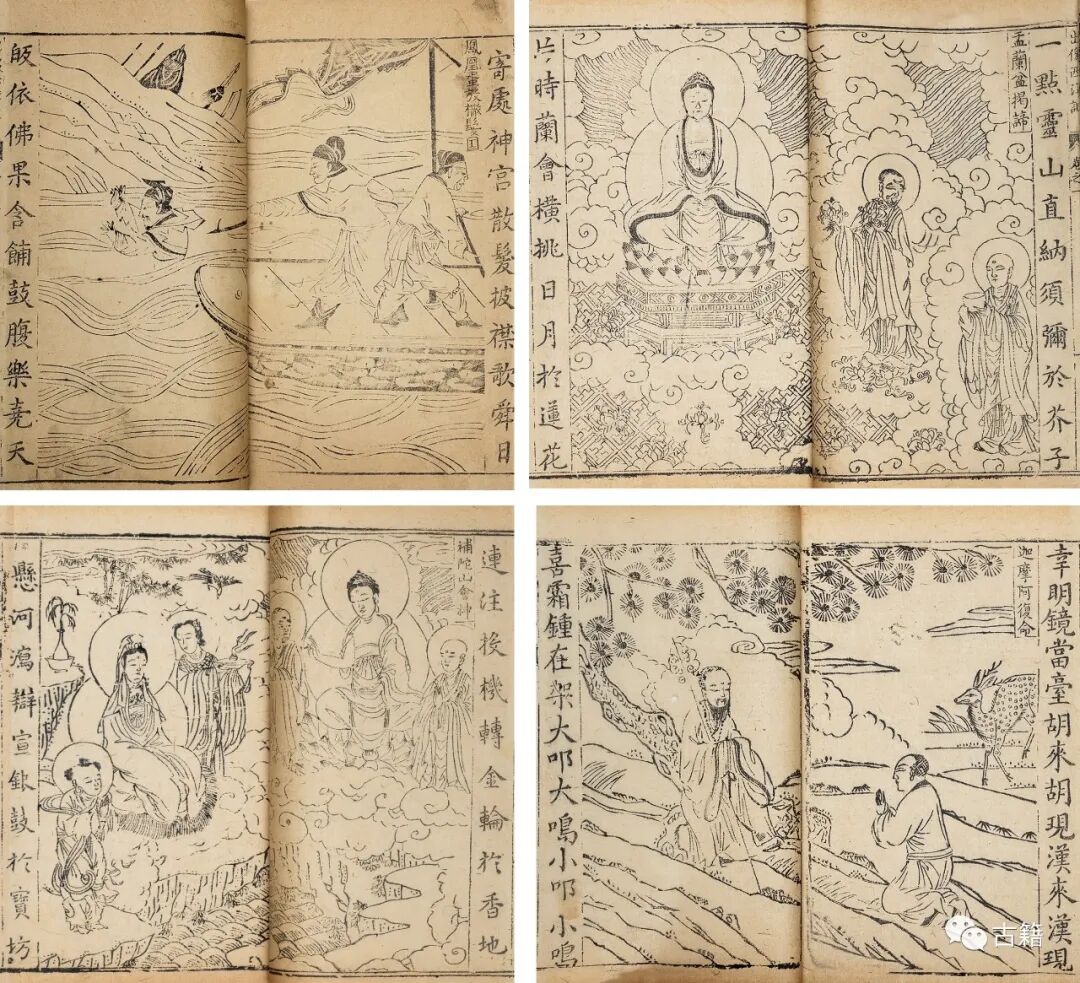 寄處神宮散髮披襟歌舜日
皈依佛果含餔鼓腹樂堯天
一點靈山直納須彌於芥子
盂蘭盆揭諦
片時蘭會橫挑日月於蓮花
連注後機轉金輪於香地
補陀山會神
懸河瀉辯宣銀鼓於寶坊
幸明鏡當臺胡來胡現漢來漢現
迦摩阿復命
喜霜鍾在架大叩大鳴小叩小鳴
古籍